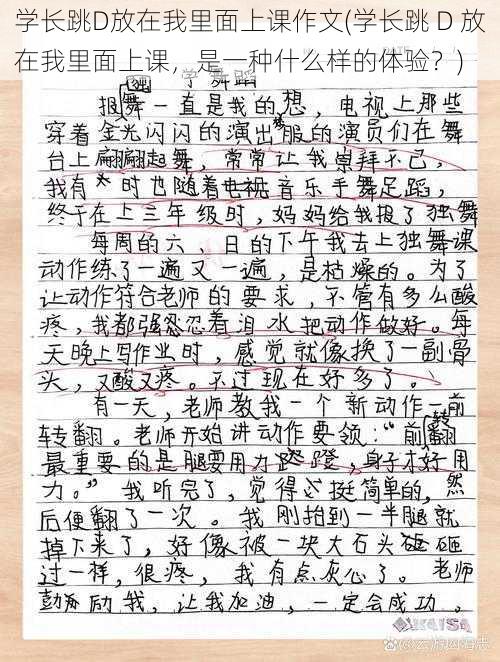 学长跳D放在我里面上课作文(学长跳 D 放
在我里面上课，是一种什么样的体验？)
学舞蹈
报舞一直是我的想，电视上那些
穿着金光闪闪的演出服的演员们在舞
台上翩翩起舞，常常让我崇拜不已，
我有时也随着电视音乐手舞足蹈，
终于在上三年级时，妈妈给我报了独舞
每周的六、日的下午我去上独舞课
动作练了一遍又一遍，是枯燥的。为了
让动作符合老师的要求，不管有多么酸
疼，我都强忍忍着泪水把动作做好。每
天晚上写作业时，感觉就像换了一副骨
头，又酸又疼。不过现在好多了。
有一天，老师教我一个新动作—前
转翻。老师开始讲动作要领：“前翻转
最重要的是腿要用力蹬，身子才好用
力。”我听完了，觉得必挺简单的，然
后便翻了一次。我刚抬到一半腿就
掉下来了，好像被一块大石头砸砸
过一样，很疼，我有点灰心了。老师
鼓励我，让我加油，一定会成功。